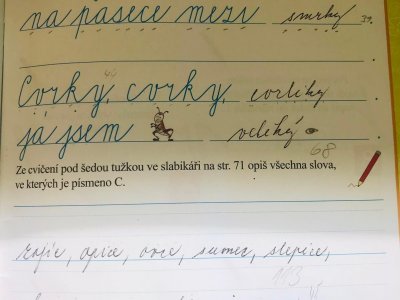 na pasece mezi smrky 39.
Cvrky, cvrky, cvrliky.
já jsem veliký
68
Ze cvičení pod šedou tužkou ve slabikáři na str. 71 opiš všechna slova,
ve kterých je písmeno C.
zajíc, opice, ovce, sumec, slepice,
113